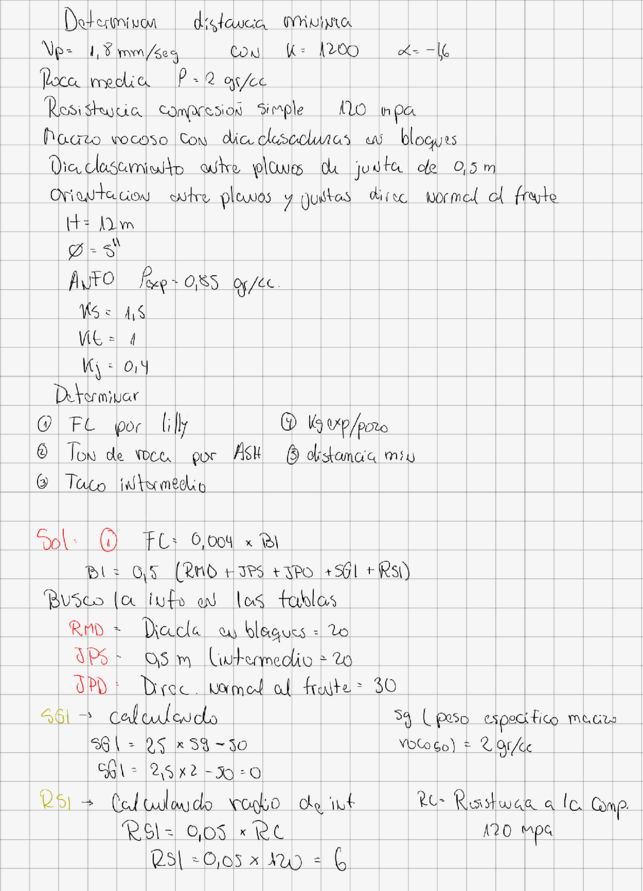 Determinar distancia minima
Vp= 1,8 mm/seg con K= 1200 α= -1,6
Roca media ρ= 2 gr/cc
Resistencia compresion simple 120 mpa
Macizo rocoso con diaclasaduras en bloques
Diaclasamiento entre planos de junta de 0,5 m
Orientacion entre planos y juntas direc normal al frente
H= 12 m
Ø = 5"
ANFO ρexp= 0,85 gr/cc.
Ks = 1,5
Kt = 1
Kj = 0,4
Determinar
① FC por lilly ④ Kg exp/pozo
② Ton de roca por ASH ③ distancia min
③ Taco intermedio
Sol. ① FC= 0,004 × BI
BI = 0,5 (RMD + JPS + JPO + SGI + RSI)
Busco la info en las tablas
RMD = Diacla en bloques = 20
JPS = 0,5 m (intermedio = 20
JPO = Direc. normal al frente = 30
SGI → calculando sg (peso especifico macizo
SGI = 25 × SG - 50 rocoso) = 2 gr/cc
SGI = 2,5 × 2 - 50 = 0
RSI → Calculando radio de int RC= Resistencia a la Comp.
RSI = 0,05 × RC 120 mpa
RSI = 0,05 × 120 = 6